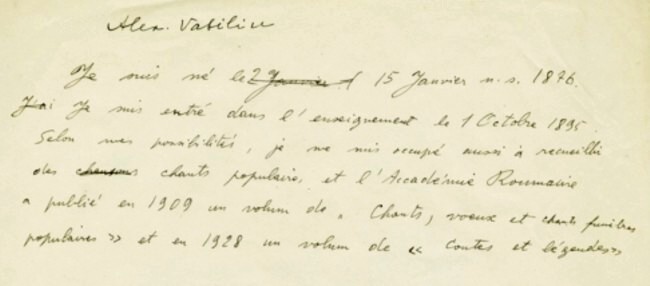 Alex. Vasiliu
Je suis né le 2 Janvier / 15 Janvier n.s. 1876.
J'ai Je suis entré dans l'enseignement le 1 Octobre 1895.
Selon mes possibilités, je me suis occupé aussi à recueilli
des chansons chants populaire, et l'Académie Roumaine
a publié en 1909 un volum de „ Chants, voeux et chants funèbres
populaires » et en 1928 un volum de « Contes et légendes»